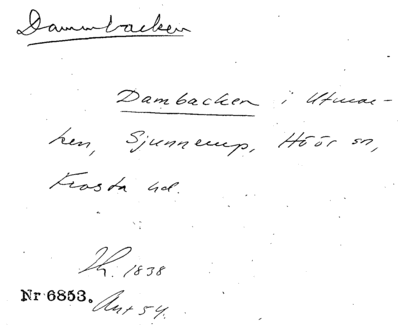 Dammbacken
Dambacken i Utmar-
ken, Sjunnerup, Höör sn,
Frosta hd.
Th. 1838
Nr 6853. Ant 54.